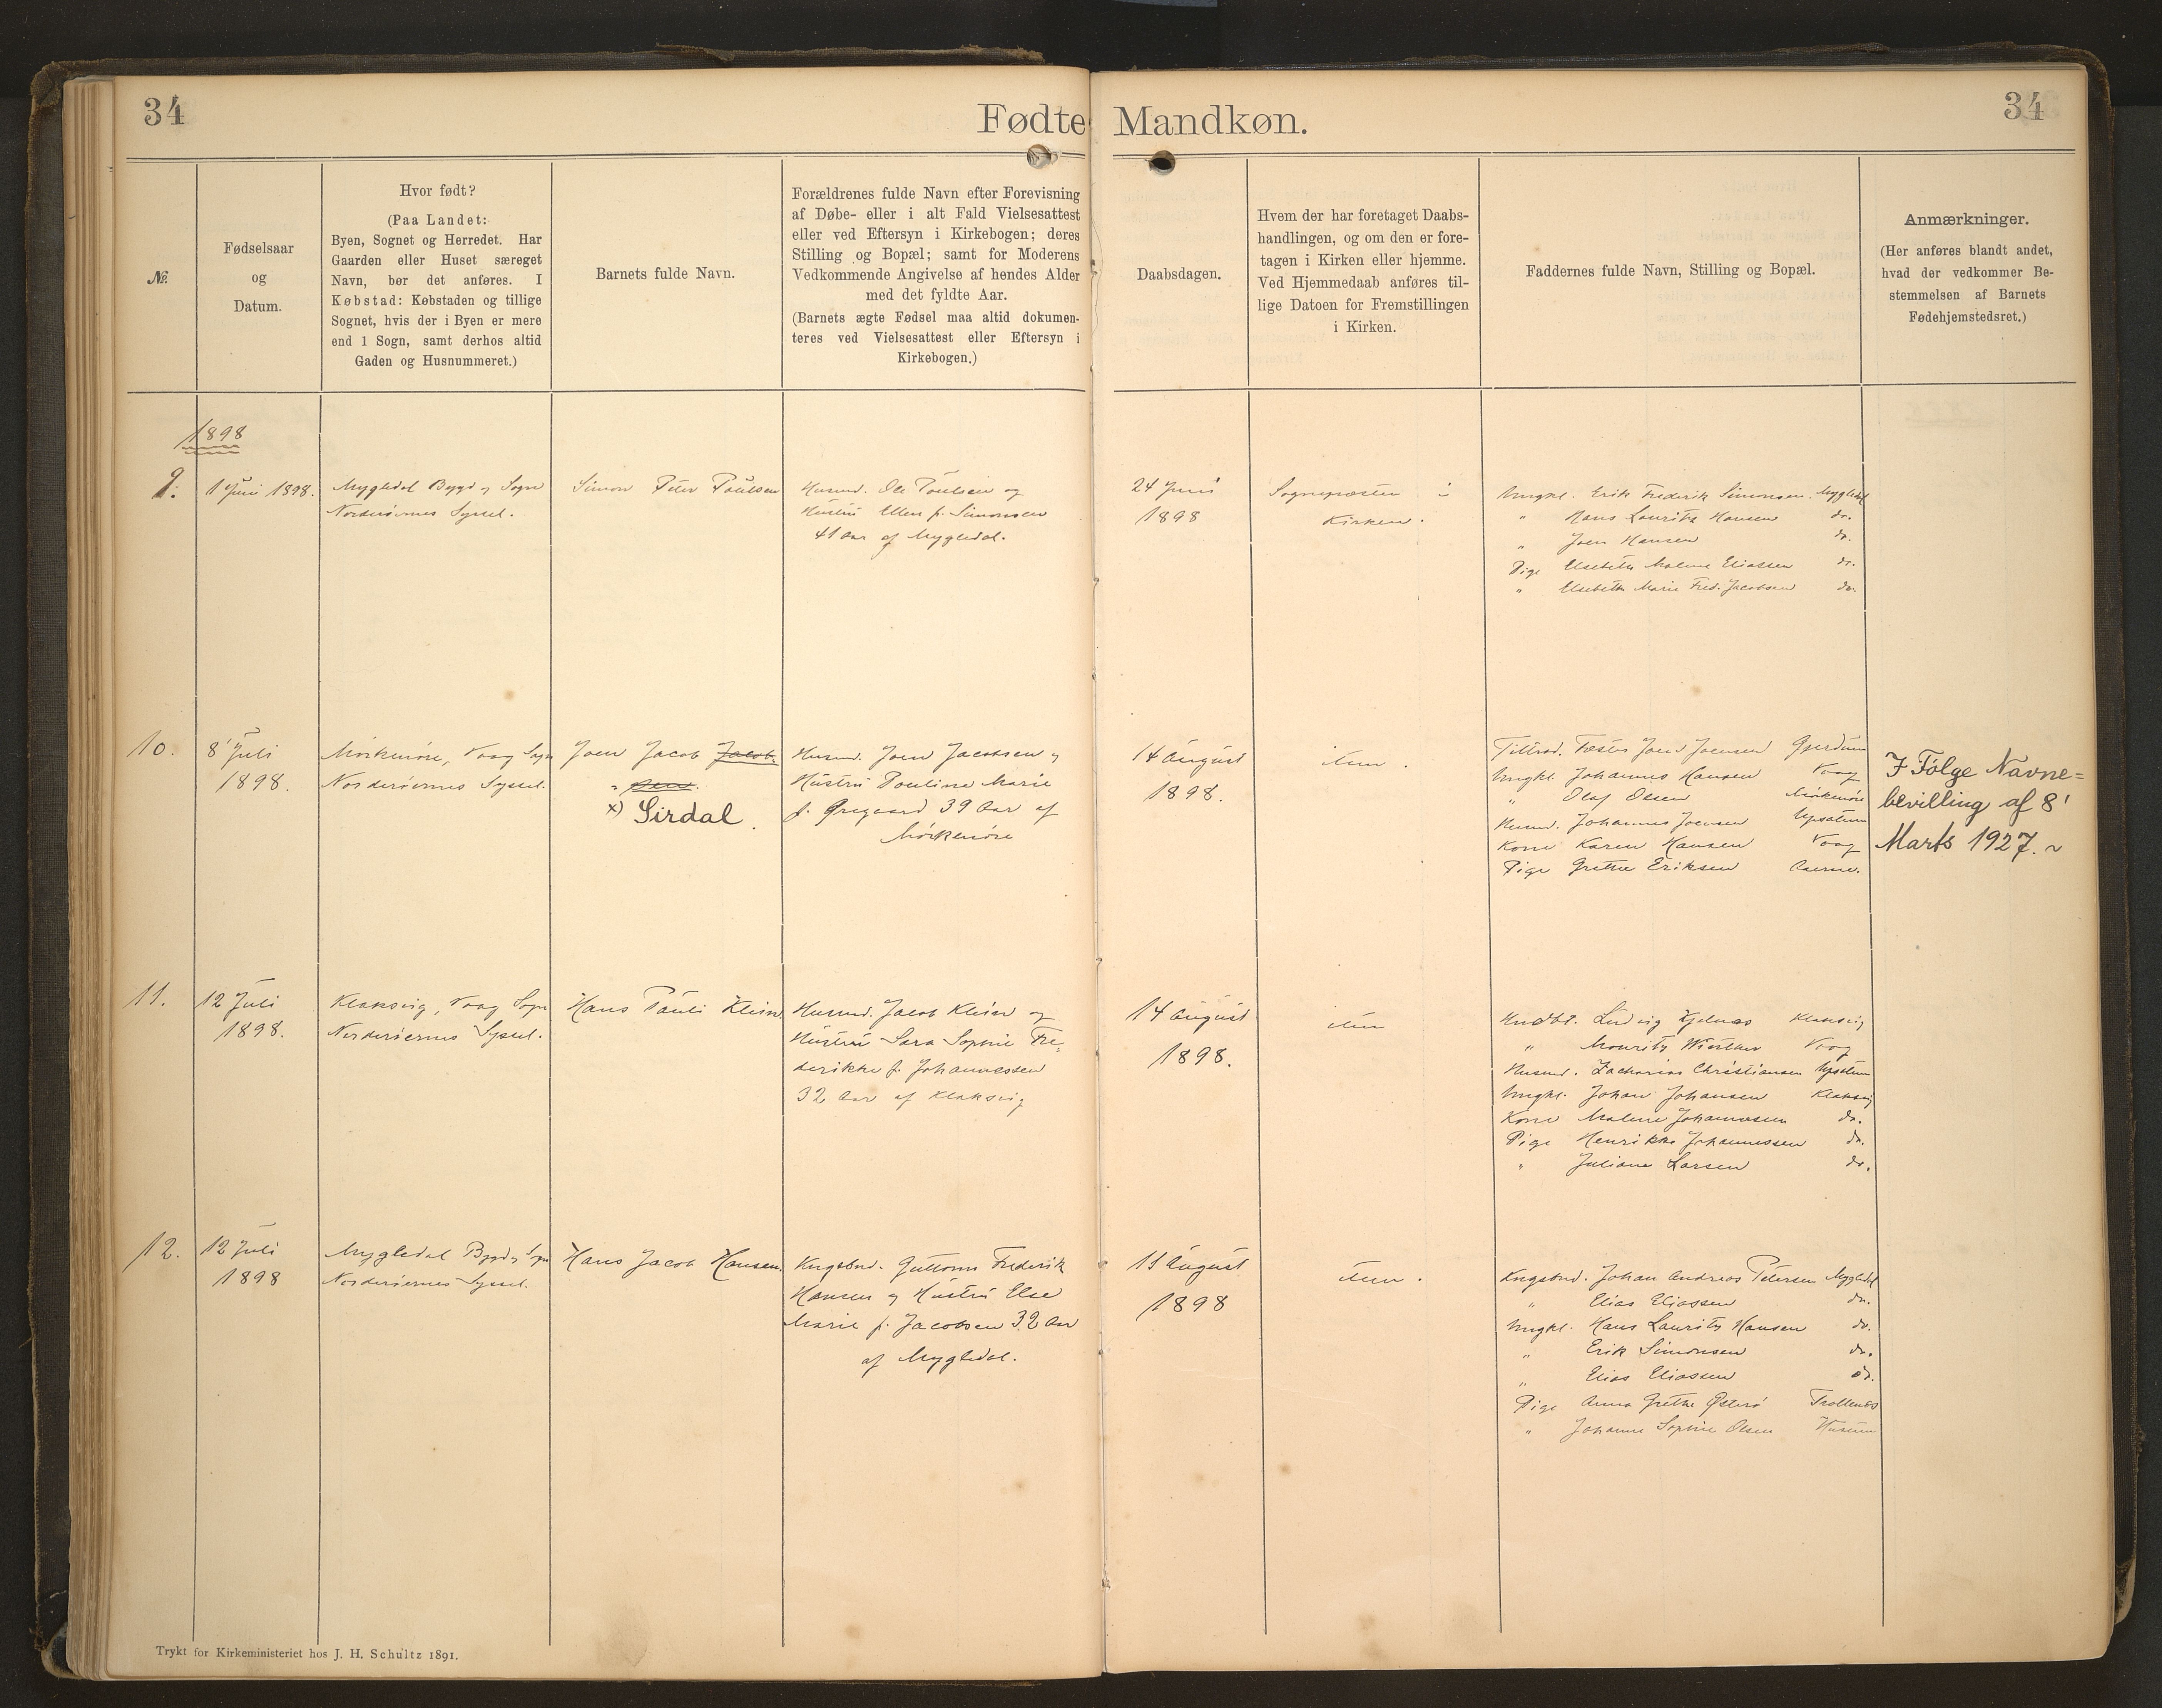 34
Fødte Mandkøn.
34
№
Fødselsaar
og
Datum.
Hvor født?
(Paa Landet:
Byen, Sognet og Herredet. Har
Gaarden eller Huset særeget
Navn, bør det anføres. I
Købstad: Købstaden og tillige
Sognet, hvis der i Byen er mere
end 1 Sogn, samt derhos altid
Gaden og Husnummeret.)
Barnets fulde Navn.
Forældrenes fulde Navn efter Forevisning
af Døbe- eller i alt Fald Vielsesattest
eller ved Eftersyn i Kirkebogen; deres
Stilling og Bopæl; samt for Moderens
Vedkommende Angivelse af hendes Alder
med det fyldte Aar.
(Barnets ægte Fødsel maa altid dokumen-
teres ved Vielsesattest eller Eftersyn i
Kirkebogen.)
Daabsdagen.
Hvem der har foretaget Daabs-
handlingen, og om den er fore-
tagen i Kirken eller hjemme.
Ved Hjemmedaab anføres til-
lige Datoen for Fremstillingen
i Kirken.
Faddernes fulde Navn, Stilling og Bopæl.
Anmærkninger.
(Her anføres blandt andet,
hvad der vedkommer Be-
stemmelsen af Barnets
Fødehjemstedsret.)
1898
9.
1 Juni 1898.
Mygledal Bygd og Sogn
Norderøernes Syssel.
Simon Peter Poulsen
Husmd. Ole Poulsen og
Hustru Ellen f. Simonsen
41 Aar af Mygledal.
24 Juni
1898
Sognepræsten i
Kirken.
Ungkl. Erik Frederik Simonsen. Mygledal
" Hans Lauritz Hansen do.
" Joen Hansen do.
Pige Elsebeth Malene Eliassen do.
" Elsebeth Marie Fred. Jacobsen do.
10.
8' Juli
1898.
Mørkenøre, Vaag Sogn
Norderøernes Syssel.
Joen Jacob Jacob-
sen.
x) Sirdal.
Husmd. Joen Jacobsen og
Hustru Pouline Marie
f. Øregaard 39 Aar af
Mørkenøre
14 August
1898.
item.
Fæster Joen Joensen
Ungkl. Johannes Hansen Vaag
" Olaf Olsen Mørkenøre
Husmd. Johannes Joensen
Kone Karen Hansen Vaag
Pige Grethe Eriksen
I Følge Navne=
bevilling af 8'
Marts 1927. ~
11.
12 Juli
1898.
Klaksvig, Vaag Sogn
Norderøernes Syssel.
Hans Pauli Klein
Husmd. Jacob Klein og
Hustru Sara Sophie Fre-
derikke f. Johannessen
32 Aar af Klaksvig
14 August
1898.
item
Ludvig Kjølnæs Klaksvig
" Mouritz Vaag
Husmd. Zacharias Christiansen
Ungkl. Johan Johansen Klaksvig
Kone Malene Johannesen do.
Pige Henrikke Johannessen do.
" Juliane Larsen do.
12.
12 Juli
1898
Mygledal Bygd og Sogn
Norderøernes Syssel.
Hans Jacob Hansen.
Kngsbnd. Guttorm Frederik
Hansen og Hustru Else
Marie f. Jacobsen 32 Aar
af Mygledal.
August
1898
item.
Kngsbnd. Johan Andreas Petersen Mygledal
" Elias Eliassen do.
Ungkl. Hans Lauritz Hansen do.
" Erik Simonsen do.
" Elias Eliassen do.
Pige Anna Grethe Østerø Trøllenæs
" Johanne Sophie Olsen Husum
Trykt for Kirkeministeriet hos J. H. Schultz 1891.